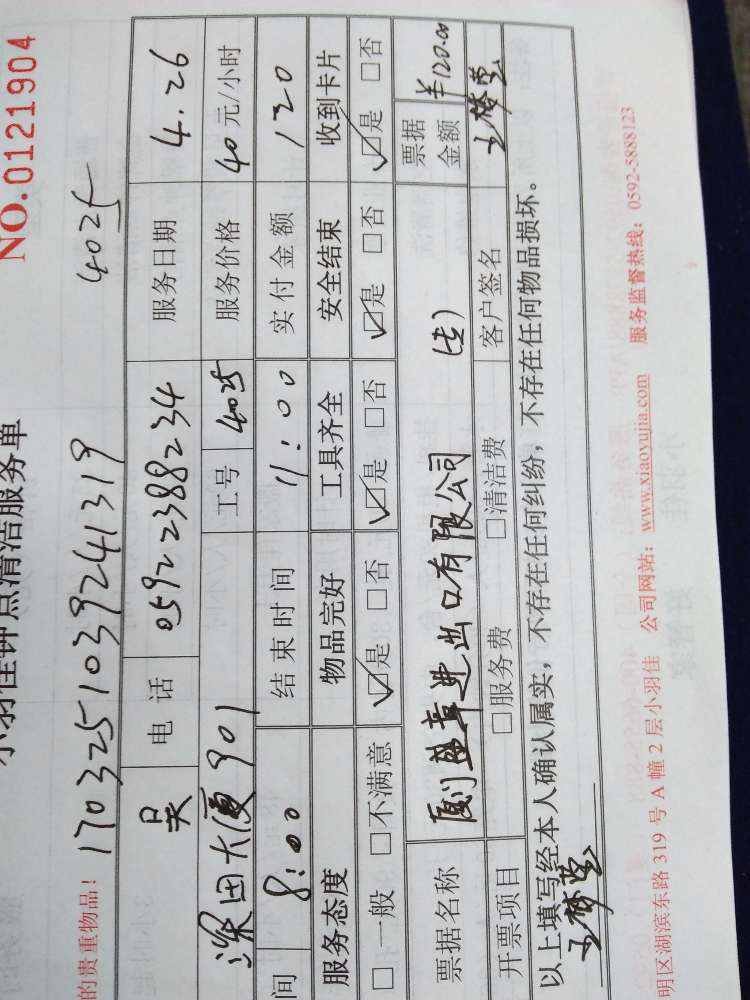 NO.0121904
小羽佳钟点清洁服务单
的贵重物品! 170325103924131 9 4025
吴 电话 05922388234 服务日期 4.26
深田大厦901 工号 4025 服务价格 40元/小时
间 8:00 结束时间 11:00 实付金额 120
服务态度 物品完好 工具齐全 安全结束 收到卡片
□一般 □不满意 ☑是 □否 ☑是 □否 ☑是 □否 ☑是 □否
票据名称 进出口有限公司 票据金额 ¥120.00
开票项目 □服务费 □清洁费 客户签名
以上填写经本人确认属实,不存在任何纠纷,不存在任何物品损坏。
明区湖滨东路319号A幢2层小羽佳 公司网站:www.xiaoyujia.com 服务监督热线:0592-5888123